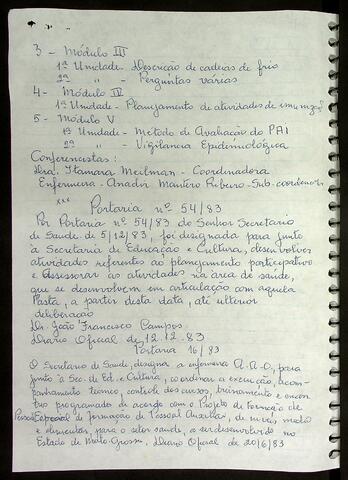 3 - Módulo III
1ª Unidade - Descrição de cadeias de frio
2ª " - Perguntas várias
4 - Módulo IV
1ª Unidade - Planejamento de atividades de imunizaç
5 - Módulo V
1ª Unidade - Metodo de Avaliação do PAI
2ª " - Vigilancia Epidemiológica
Conferencistas:
Dra. Itamara Meilman - Coordenadora
Enfermeira - Anadir Monteiro Ribeiro - Sub-coordenora
xxx Portaria nº 54/83
Por Portaria nº 54/83 do Senhor Secretario
de Saude de 5/12/83, foi designada para junto
a Secretaria de Educação e Cultura, desenvolver
atividades referentes ao planejamento participativo
e assessorar as atividades na área de saúde,
que se desenvolvem em articulação com aquela
Pasta, a partir desta data, até ulterior
deliberação
Dr. João Francisco Campos
Diario Oficial de 12.12.83
Portaria 16/83
O Secretario de Saude, designar a enfermeira A.A.O, para
junto à Sec. de Ed. e Cultura, coordinar a execução, acom
panhamento tecnico, controle dos cursos, treinamento e encon
tros programados de acordo com o Projeto de Formação de
Pessoal Especial de formação de Pessoal Auxiliar, de nivel medio
e elementar, para o setor saude, a ser desenvolvido no
Estado de Mato Grosso, Diario Oficial de 20/6/83